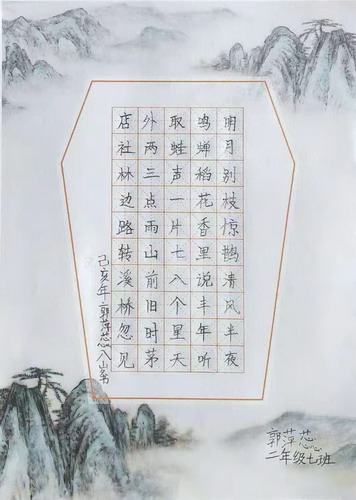 明月别枝惊鹊清风半夜
鸣蝉稻花香里说丰年听
取蛙声一片七八个星天
外两三点雨山前旧时茅
店社林边路转溪桥忽见
己亥年郭萍蕊
郭萍蕊
二年级七班